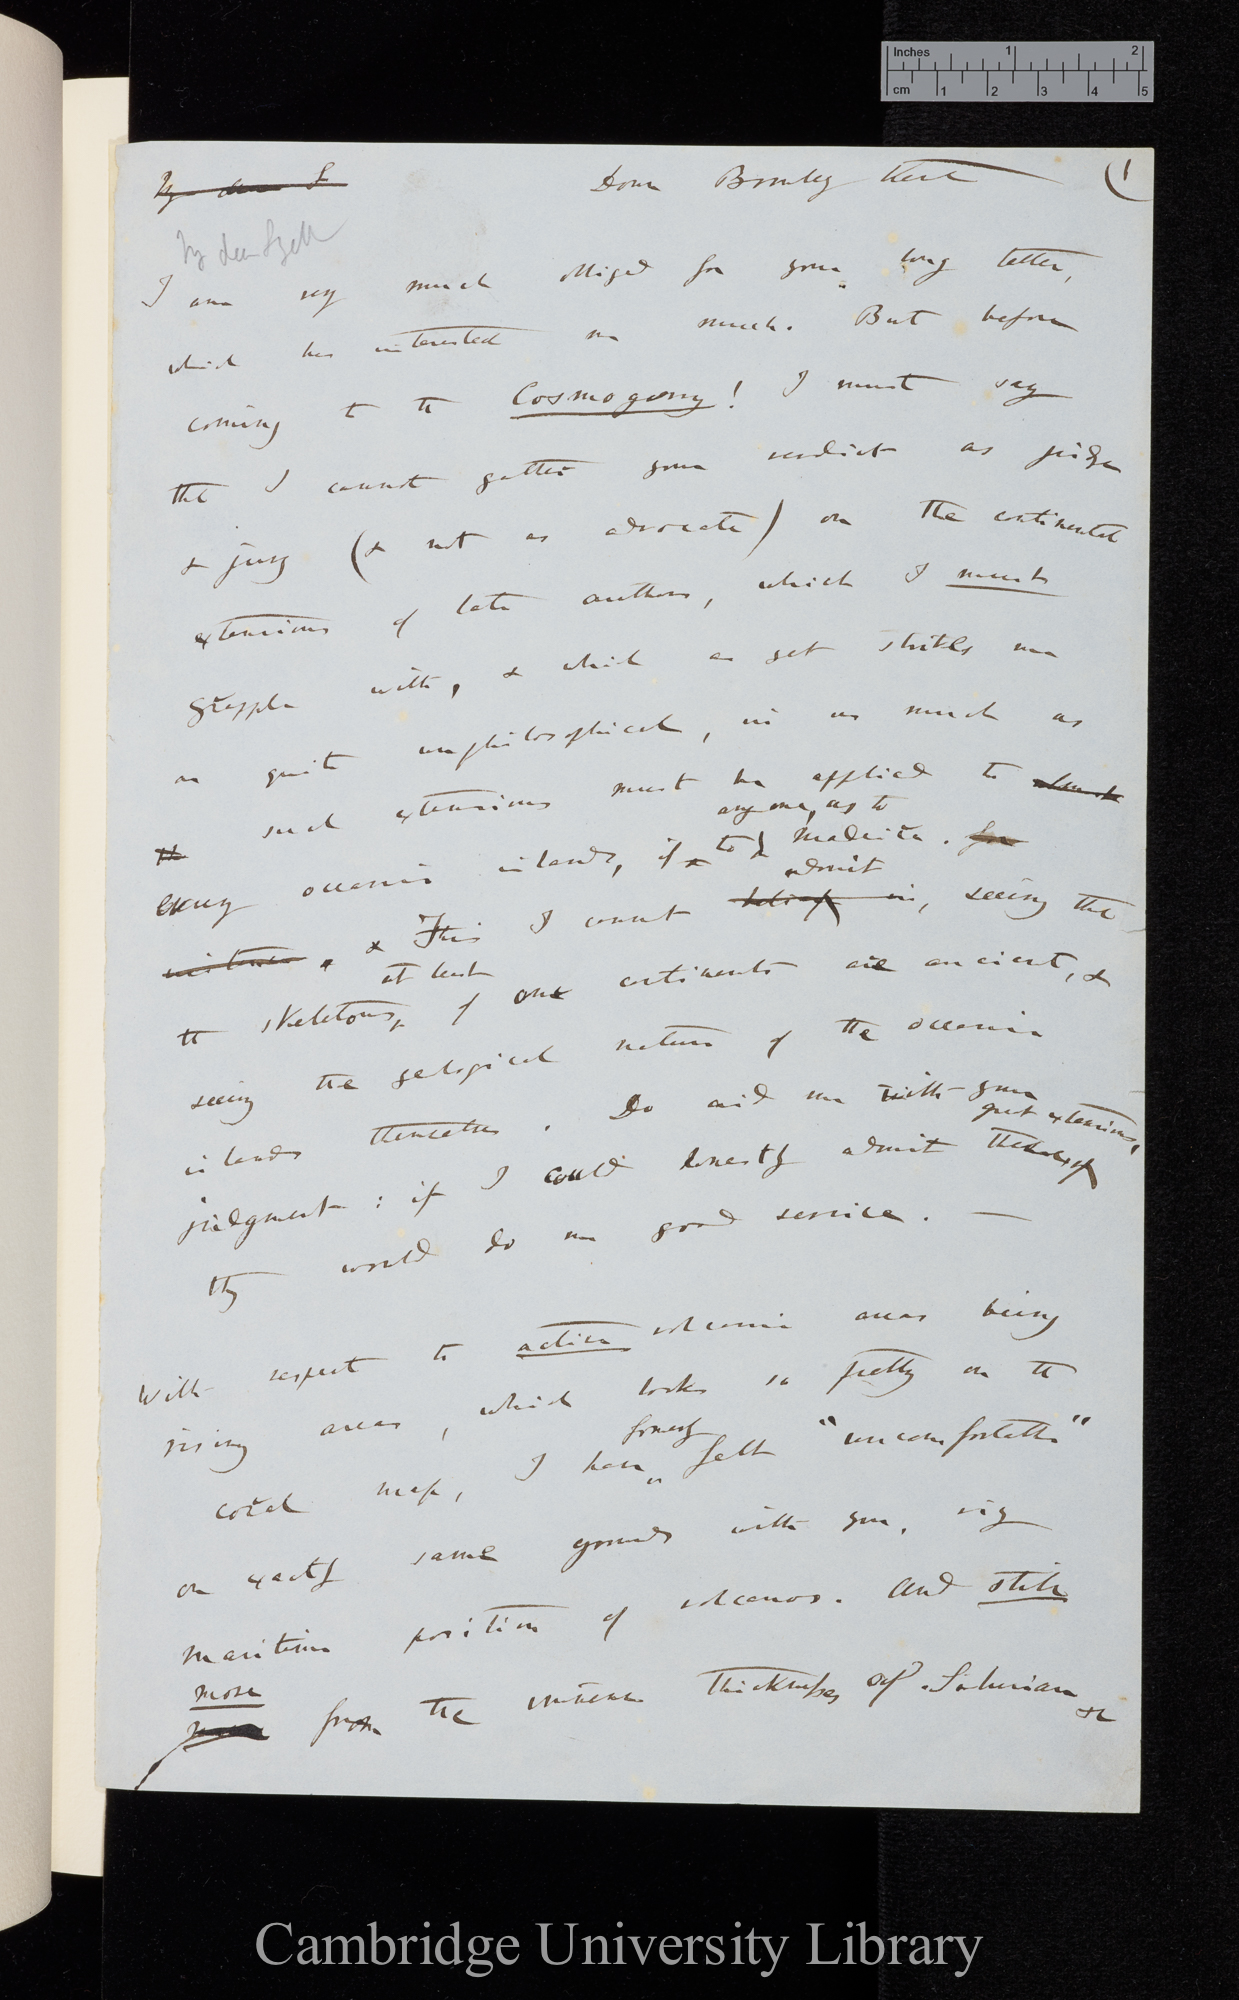 Inches 1 2
cm 1 2 3 4 5
(1
My dear S
Down Bromley Kent
My dear Lyell
I am very much obliged for your long letter,
which has interested me much. But before
coming to the Cosmogony! I must say
that I cannot gather your verdict as judge
& jury (& not as advocate) on the continental
extensions of late authors, which I must
grapple with, & which as yet strikes me
as quite unphilosophical, in as much as
such extensions must be applied to almost
every oceanic island, if to any one, as to Madeira. for
instance. & This I cannot belief in, admit, seeing that
the skeletons, at least of our continents are ancient, &
seeing the geological nature of the oceanic
islands themselves. Do aid me with your
judgment: if I could honestly admit these great extensions,
they would do me good service. —
With respect to active volcanic areas being
rising areas, which looks so pretty on the
coral map, I have formerly felt "uncomfortable"
on exactly same grounds with you, viz
maritime position of volcanos. And still
more from the immense thicknesses of Silurian &c
Cambridge University Library